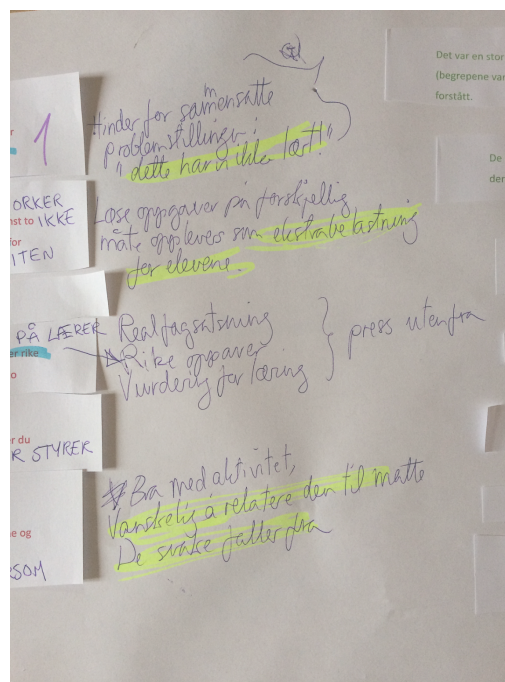 Det var en stor
(begrepene var
forstått.
De
der
1
Hinder for samensatte
m
problemstillinger:
"dette har vi ikke lært!"
ORKER
nst to IKKE
for
ITEN
Løse oppgaver på forskjellig
måte oppleves som ekstrabelastning
for elevene.
PÅ LÆRER
er rike
o
Realfagsatsning
Rike oppgaver
Vurdering for læring
press utenfra
r du
R STYRER
e og
RSOM
Bra med aktivitet,
Vanskelig å relatere den til matte
De svake faller fra